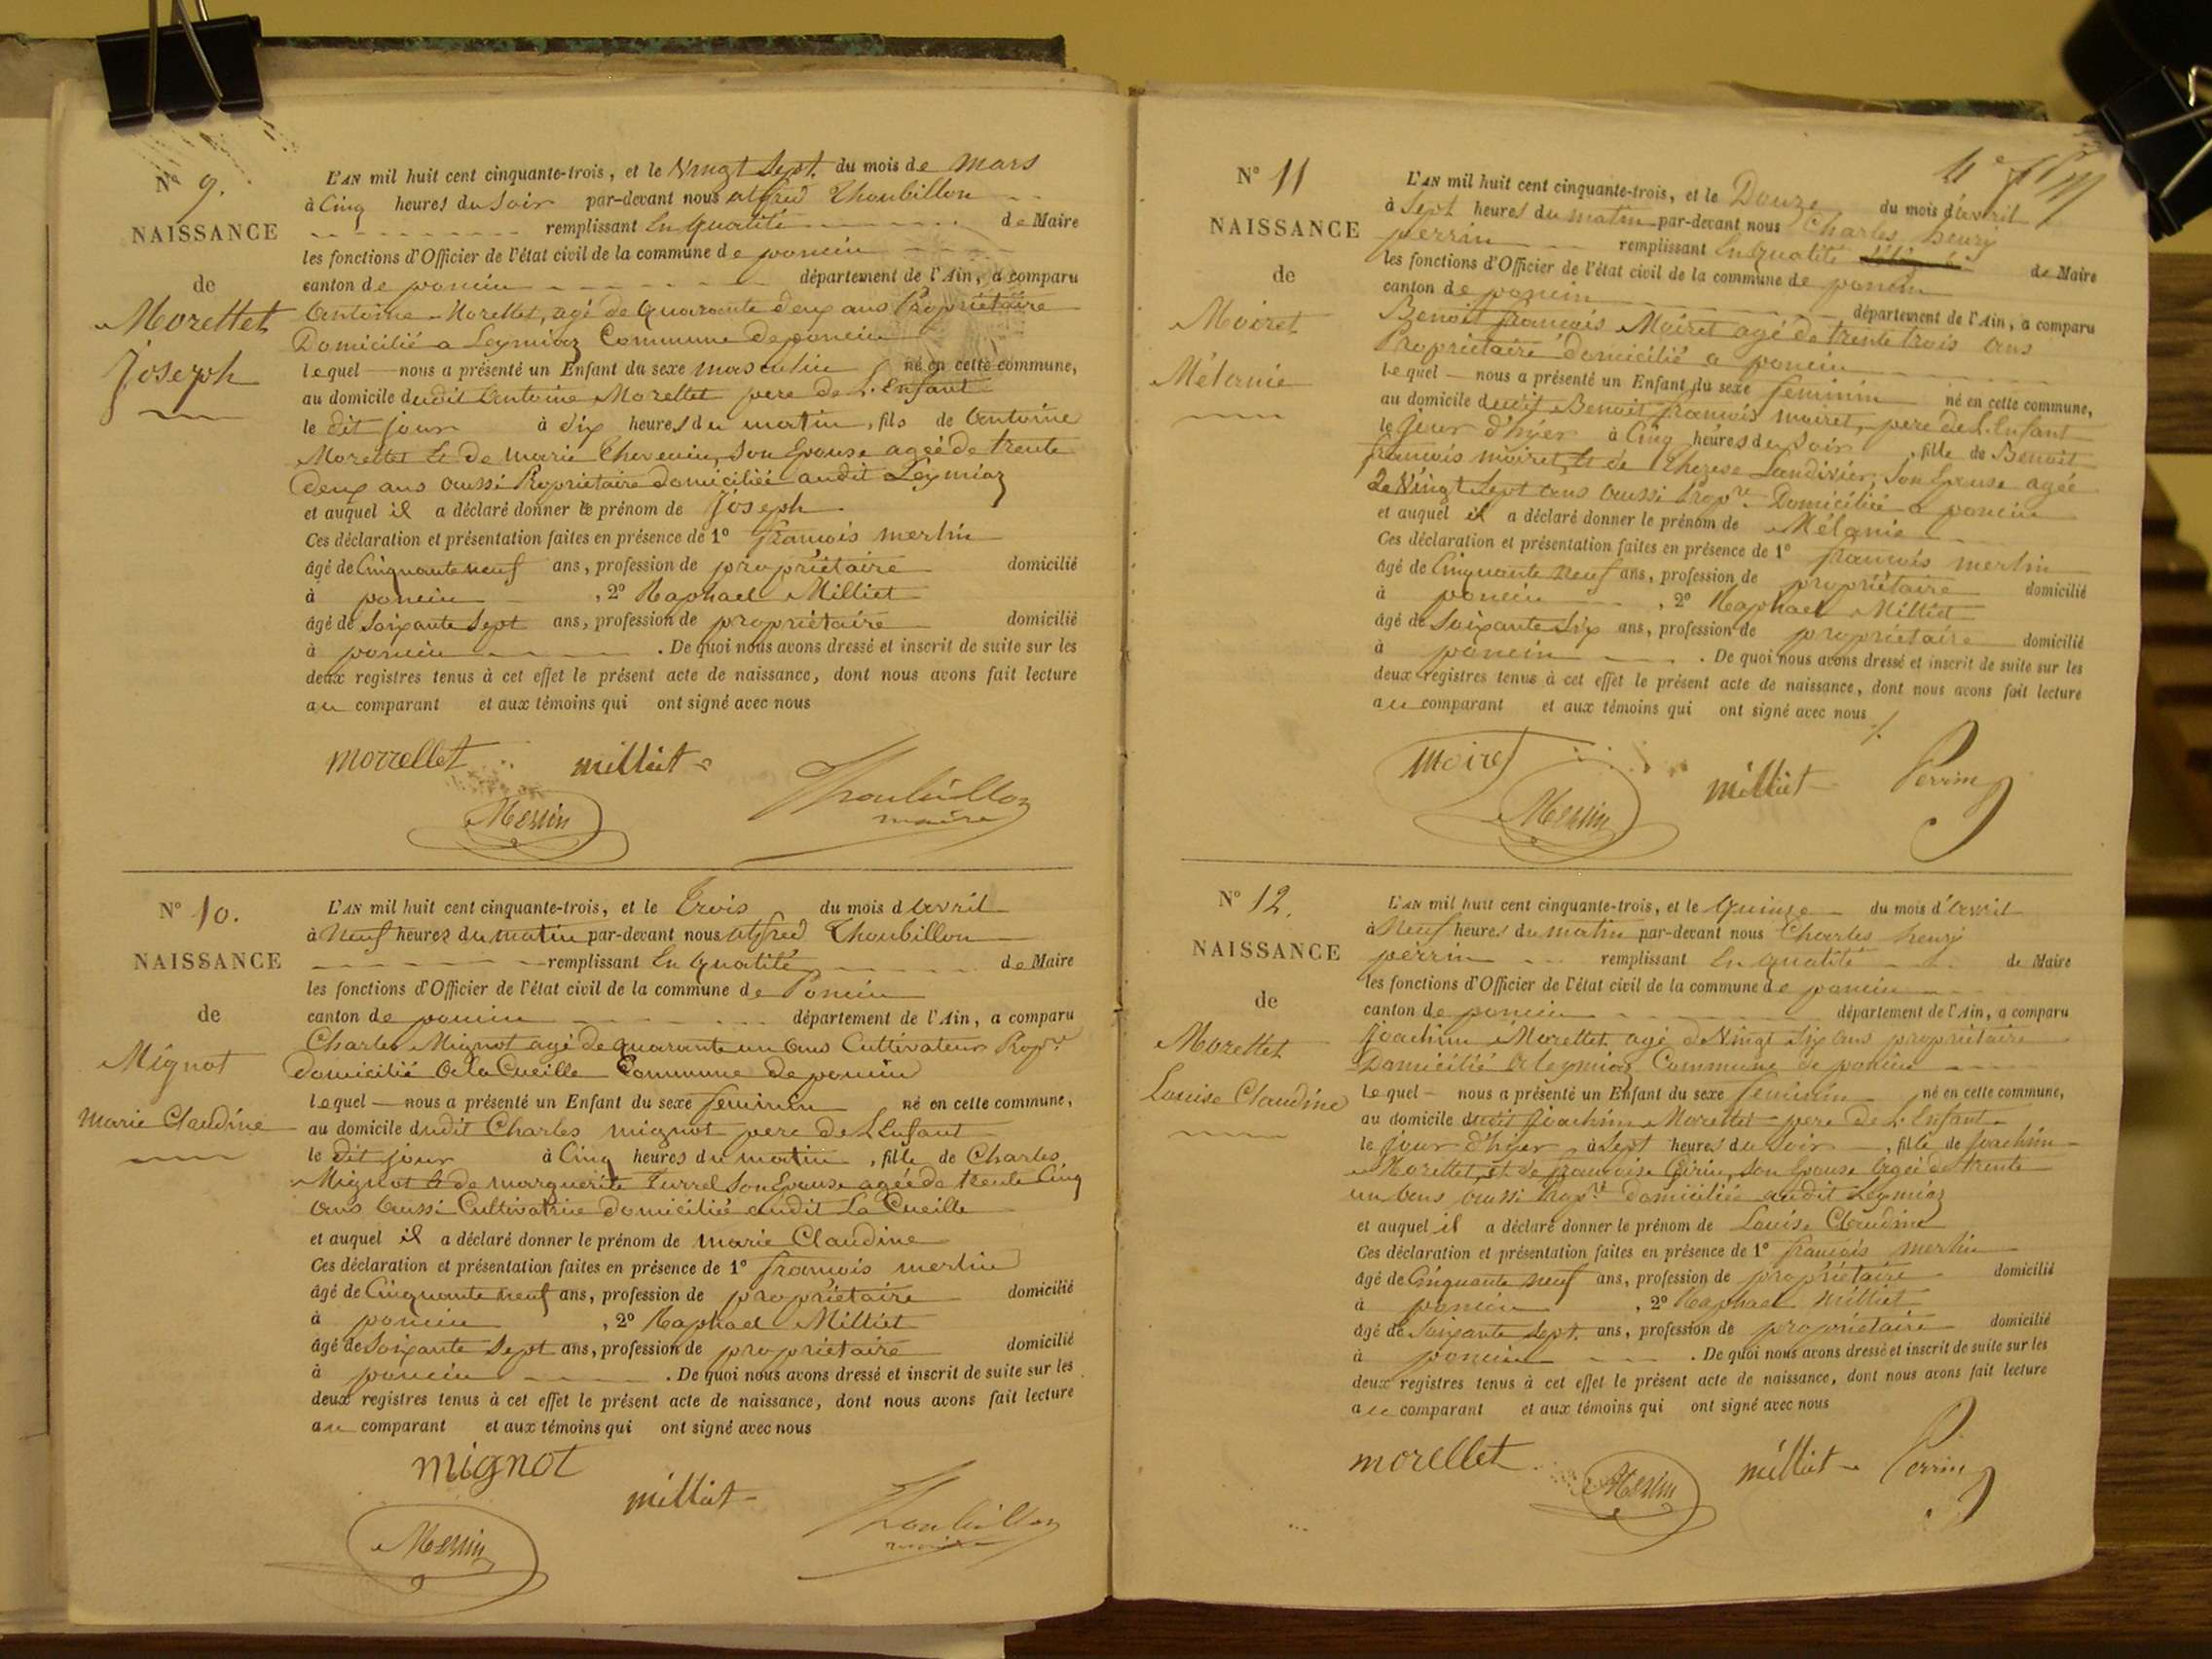 N° 9.
NAISSANCE
de
Morellet
Joseph
L'AN mil huit cent cinquante-trois, et le Vingt Sept. du mois de Mars
à Cinq heures du Soir par-devant nous alfred Thoubillon
remplissant En qualité de Maire
les fonctions d'Officier de l'état civil de la commune de poncin
canton de poncin département de l'Ain, a comparu
Antoine Morellet, agé de Quarante deux ans Propriétaire
Domicilié a Leymiaz Commune de poncin
Lequel nous a présenté un Enfant du sexe masculin né en cette commune,
au domicile dudit Antoine Morellet pere de L'Enfant
le dit jour à dix heures du matin, fils de Antoine
Morellet Et de Marie Chevenin, Son Epouse agée de trente
deux ans aussi Propriétaire domiciliée audit Leymiaz
et auquel il a déclaré donner le prénom de Joseph
Ces déclaration et présentation faites en présence de 1° françois merlin
âgé de Cinquante neuf ans, profession de propriétaire domicilié
à poncin, 2° Raphael Milliet
âgé de Soixante Sept ans, profession de propriétaire domicilié
à poncin. De quoi nous avons dressé et inscrit de suite sur les
deux registres tenus à cet effet le présent acte de naissance, dont nous avons fait lecture
au comparant et aux témoins qui ont signé avec nous
morrellet milliet
Merlin Thoubillon
maire
N° 10.
NAISSANCE
de
Mignot
Marie Claudine
L'AN mil huit cent cinquante-trois, et le Trois du mois d'avril
à Neuf heures du matin par-devant nous alfred Thoubillon
remplissant En Qualité de Maire
les fonctions d'Officier de l'état civil de la commune de Poncin
canton de poncin département de l'Ain, a comparu
Charles Mignot agé de quarante un ans Cultivateur Propre
domicilié a la Cueille Commune de poncin
Lequel nous a présenté un Enfant du sexe feminin né en cette commune,
au domicile dudit Charles mignot pere de L'Enfant
le dit jour à Cinq heures du matin, fille de Charles
Mignot Et de Marguerite Turrel Son Epouse agée de trente Cinq
ans aussi Cultivatrice domiciliée audit La Cueille
et auquel il a déclaré donner le prénom de marie Claudine
Ces déclaration et présentation faites en présence de 1° françois merlin
âgé de Cinquante neuf ans, profession de propriétaire domicilié
à poncin, 2° Raphael Milliet
âgé de Soixante Sept ans, profession de propriétaire domicilié
à poncin. De quoi nous avons dressé et inscrit de suite sur les
deux registres tenus à cet effet le présent acte de naissance, dont nous avons fait lecture
au comparant et aux témoins qui ont signé avec nous
mignot
milliet
Merlin Thoubillon
maire
N° 11
NAISSANCE
de
Moiret
Mélanie
L'AN mil huit cent cinquante-trois, et le Douze du mois d'avril
à Sept heures du matin par-devant nous Charles henry
perrin remplissant En Qualité de Maire
les fonctions d'Officier de l'état civil de la commune de poncin
canton de poncin département de l'Ain, a comparu
Benoit françois Moiret agé de trente trois ans
Propriétaire domicilié a poncin
Lequel nous a présenté un Enfant du sexe feminin né en cette commune,
au domicile dudit Benoit françois moiret, pere de L'Enfant
le jour d'hyer à Cinq heures du Soir, fille de Benoit
françois moiret, Et de Therese Landivier, Son Epouse agée
de Vingt Sept ans aussi Propre Domiciliée a poncin
et auquel il a déclaré donner le prénom de Mélanie
Ces déclaration et présentation faites en présence de 1° françois merlin
âgé de Cinquante Neuf ans, profession de propriétaire domicilié
à poncin, 2° Raphael Milliet
âgé de Soixante Six ans, profession de propriétaire domicilié
à poncin. De quoi nous avons dressé et inscrit de suite sur les
deux registres tenus à cet effet le présent acte de naissance, dont nous avons fait lecture
au comparant et aux témoins qui ont signé avec nous
moiret
Merlin milliet Perrin
N° 12.
NAISSANCE
de
Morellet
Louise Claudine
L'AN mil huit cent cinquante-trois, et le Quinze du mois d'avril
à Neuf heures du matin par-devant nous Charles henry
perrin remplissant En qualité de Maire
les fonctions d'Officier de l'état civil de la commune de poncin
canton de poncin département de l'Ain, a comparu
Joachim Morellet agé de Vingt Six ans propriétaire
Domicilié a leymiaz Commune de poncin
Lequel nous a présenté un Enfant du sexe feminin né en cette commune,
au domicile dudit Joachim Morellet pere de L'Enfant
le jour d'hyer à Sept heures du Soir, fille de Joachim
Morellet, et de françoise Girin, Son Epouse agée de trente
un ans aussi Propre domiciliée audit Leymiaz
et auquel il a déclaré donner le prénom de Louise Claudine
Ces déclaration et présentation faites en présence de 1° françois merlin
âgé de Cinquante neuf ans, profession de propriétaire domicilié
à poncin, 2° Raphael Milliet
âgé de Soixante Sept. ans, profession de propriétaire domicilié
à poncin. De quoi nous avons dressé et inscrit de suite sur les
deux registres tenus à cet effet le présent acte de naissance, dont nous avons fait lecture
au comparant et aux témoins qui ont signé avec nous
morellet Merlin milliet Perrin